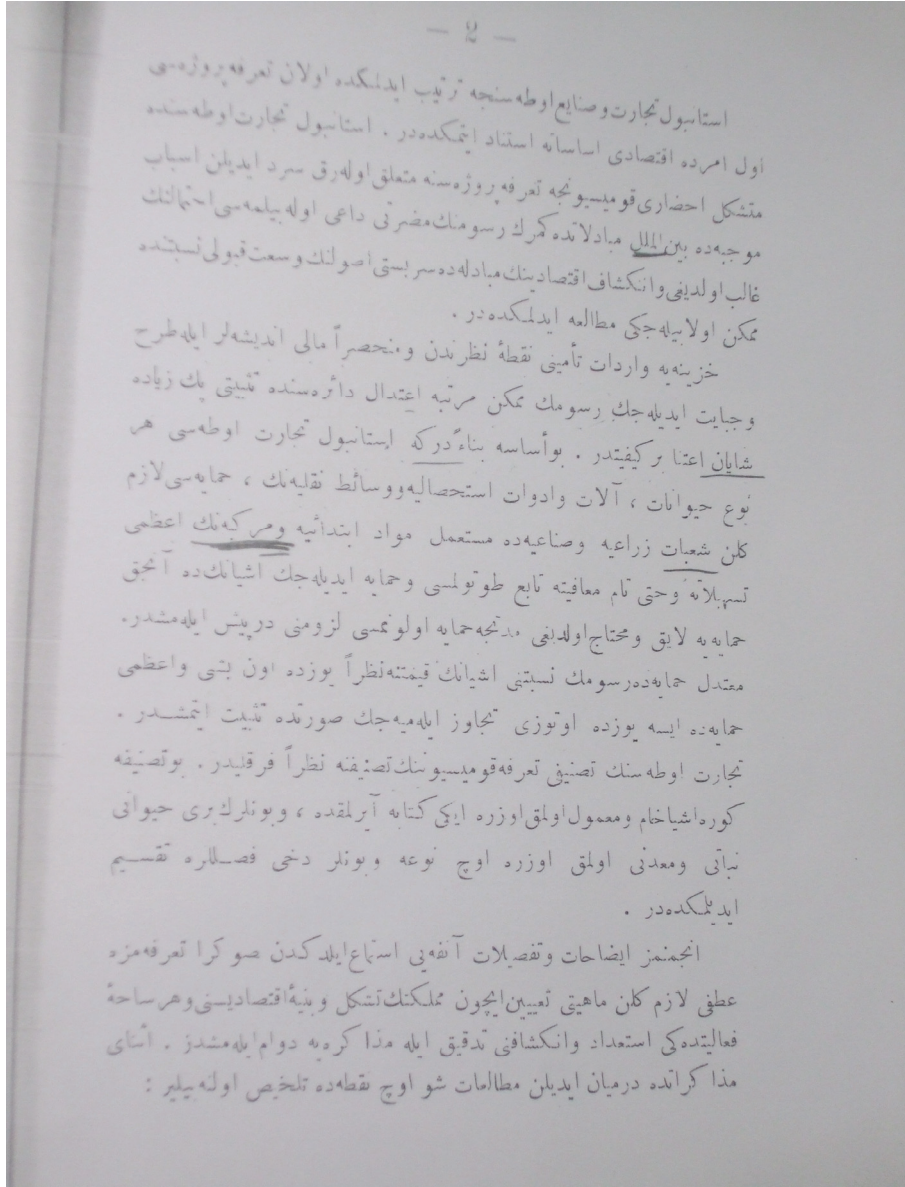 — 2 —
استانبول تجارت و صنایع اوطه‌سنجه ترتیب ایدلمكده اولان تعرفه پروژه‌سی
اول امرده اقتصادی اساساته استناد ایتمكده‌در . استانبول تجارت اوطه‌سنده
متشكل احضاری قومیسیونجه تعرفه پروژه‌سنه متعلق اوله‌رق سرد ایدیلن اسباب
موجبه‌ده بین‌الملل مبادلاتده كمرك رسومنك مضرتی داعی اوله بیلمه‌سی احتمالنك
غالب اولدیغی وانكشاف اقتصادینك مبادله‌ده سربستی اصولنك وسعت قبولی نسبتنده
ممكن اولا بیله‌جكی مطالعه ایدلمكده‌در .
خزینه‌یه واردات تأمینی نقطهٔ نظرندن ومنحصراً مالی اندیشه‌لر ایله طرح
وجبایت ایدیله‌جك رسومك ممكن مرتبه اعتدال دائره‌سنده تثبیتی پك زیاده
شایان اعتنا بر كیفیتدر . بو أساسه بناءً دركه ایستانبول تجارت اوطه‌سی هر
نوع حیوانات ، آلات وادوات استحصالیه ووسائط نقلیه‌نك ، حمایه‌سی لازم
كلن شعبات زراعیه وصناعیه‌ده مستعمل مواد ابتدائیه ومركبه‌نك اعظمی
تسهیلاته وحتی تام معافیته تابع طوتولمسی وحمایه ایدیله‌جك اشیانك‌ده آنجق
حمایه‌یه لایق ومحتاج اولدیغی مدتجه حمایه اولونمسی لزومنی درپیش ایله‌مشدر.
معتدل حمایه‌ده رسومك نسبتنی اشیانك قیمتنه نظراً یوزده اون بشی واعظمی
حمایه‌ده ایسه یوزده اوتوزی تجاوز ایله‌میه‌جك صورتده تثبیت ایتمشـدر .
تجارت اوطه‌سنك تصنیفی تعرفه قومیسیوننك تصنیفنه نظراً فرقلیدر . بو تصنیفه
كوره اشیا خام ومعمول اولمق اوزره ایكی كتابه آیرلمقده ، وبونلرك بری حیوانی
نباتی ومعدنی اولمق اوزره اوچ نوعه وبونلر دخی فصـللره تقسـیم
ایدیلمكده‌در .
انجمنمز ایضاحات وتفصیلات آنفه‌یی استماع ایلدكدن صوكرا تعرفه‌مزه
عطفی لازم كلن ماهیتی تعیین ایچون مملكتك تشكل وبنیهٔ اقتصادیسنی وهر ساحهٔ
فعالیتده‌كی استعداد وانكشافنی تدقیق ایله مذاكره‌یه دوام ایله‌مشدر . اثنای
مذاكراتده درمیان ایدیلن مطالعات شو اوچ نقطه‌ده تلخیص اولنه‌بیلیر :